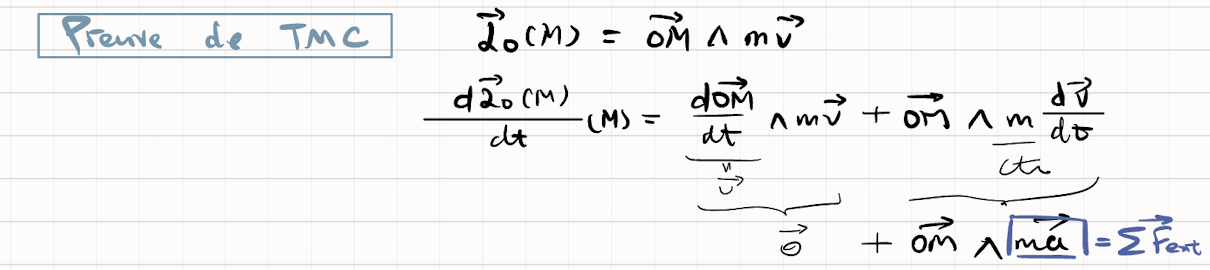 Preuve de TMC
\vec{L}_O(M) = \vec{OM} ∧ m\vec{v}
\frac{d\vec{L}_O(M)}{dt}(M) = \frac{d\vec{OM}}{dt} ∧ m\vec{v} + \vec{OM} ∧ m\frac{d\vec{v}}{dt}
\vec{v} cte
\vec{0} + \vec{OM} ∧ m\vec{a} = Σ\vec{F}_{ext}